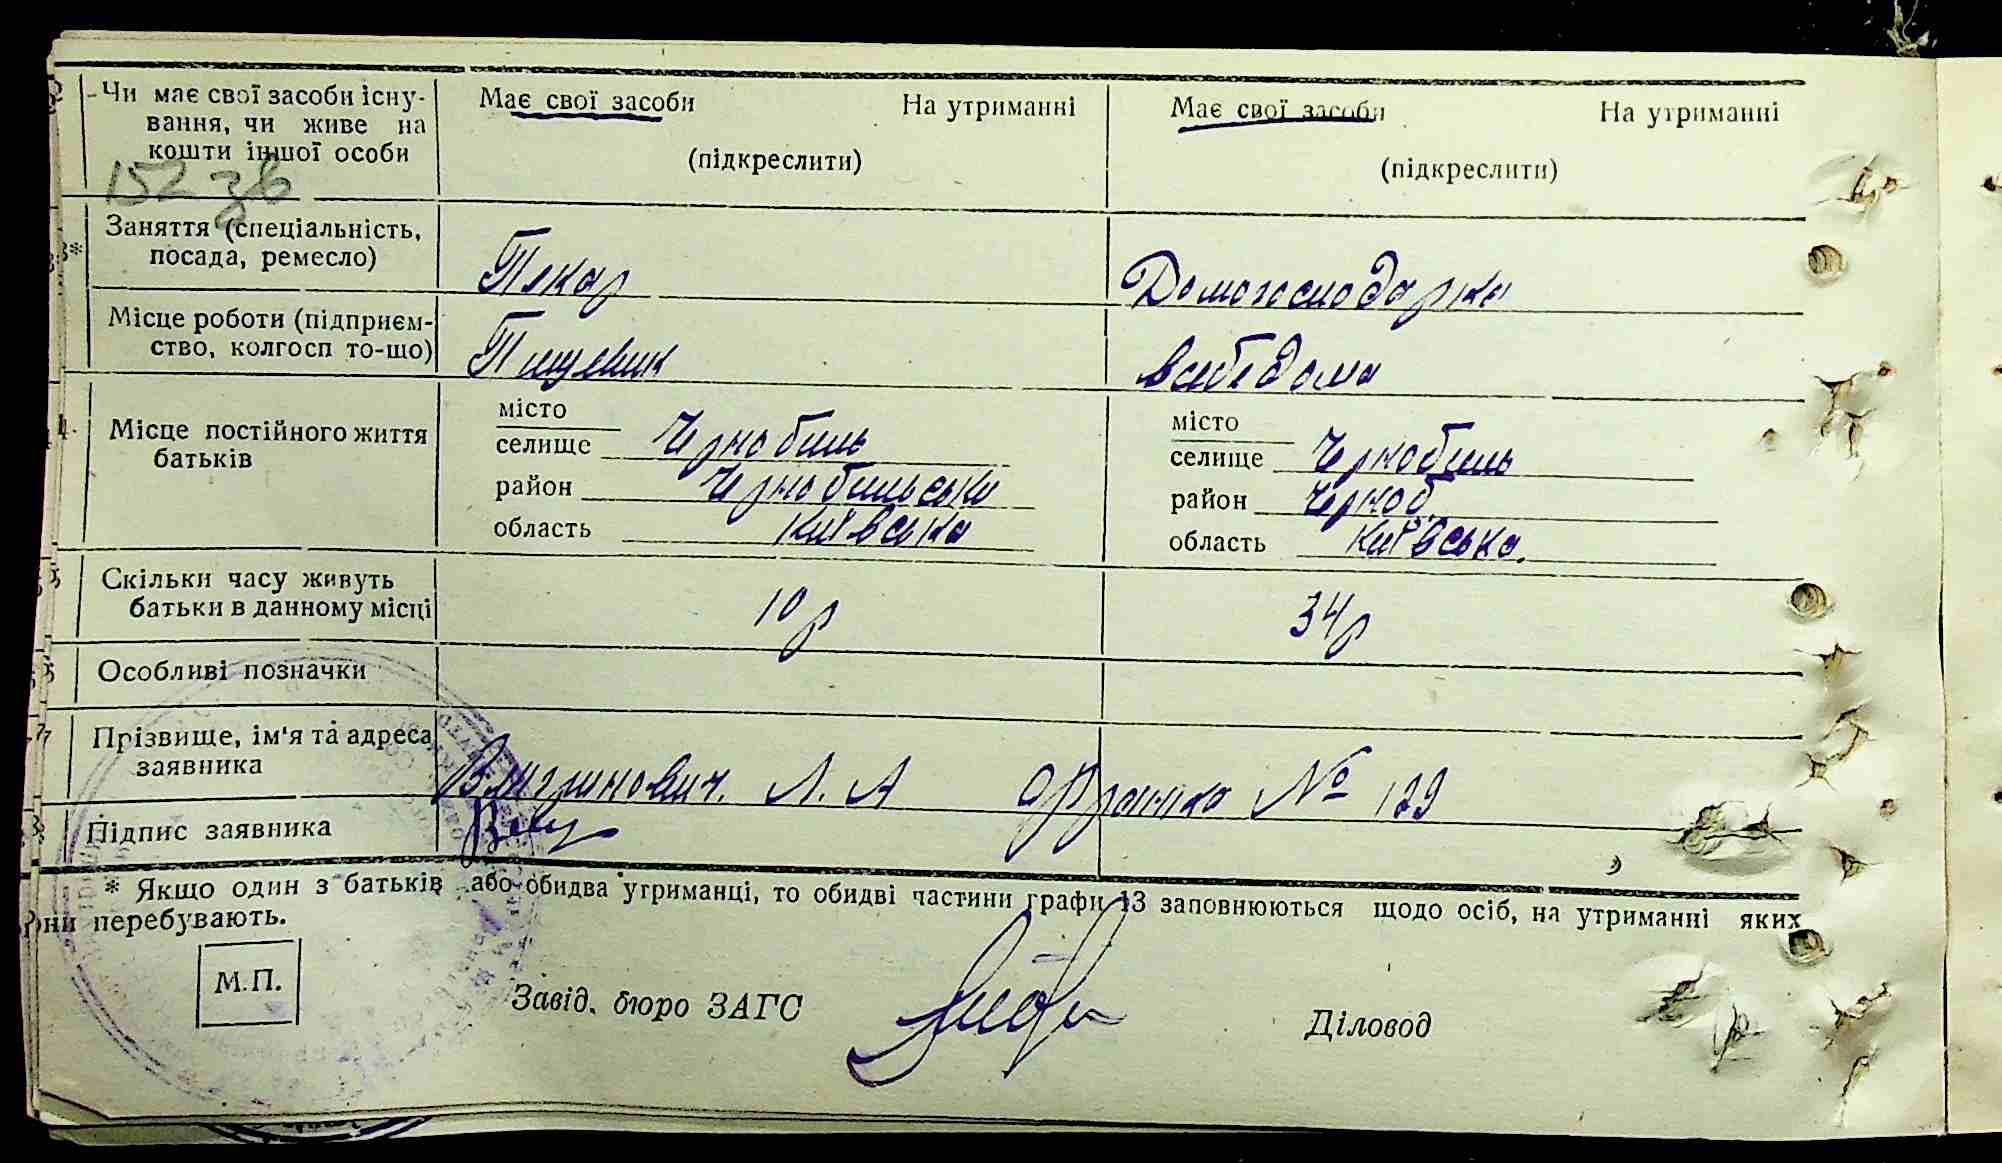 2 Чи має свої засоби існу- Має свої засоби На утриманні Має свої засоби На утриманні
вання, чи живе на
кошти іншої особи (підкреслити) (підкреслити)
152 зв
3* Заняття (спеціальність,
посада, ремесло) Пекар Домогосподарка
Місце роботи (підприєм-
ство, колгосп то-що) Пищевик в себе дома
4. Місце постійного життя
батьків
місто місто
селище Чернобиль селище Чернобиль
район Чернобильськи район Черноб.
область Київська область Київська.
5 Скільки часу живуть
батьки в данному місці 10 р 34 р
Особливі позначки
7 Прізвище, ім'я та адреса
заявника Л. А Франко № 129
Підпис заявника
* Якщо один з батьків або обидва утриманці, то обидві частини графи 13 заповнюються щодо осіб, на утриманні яких
вони перебувають.
М.П.
Завід. бюро ЗАГС Діловод